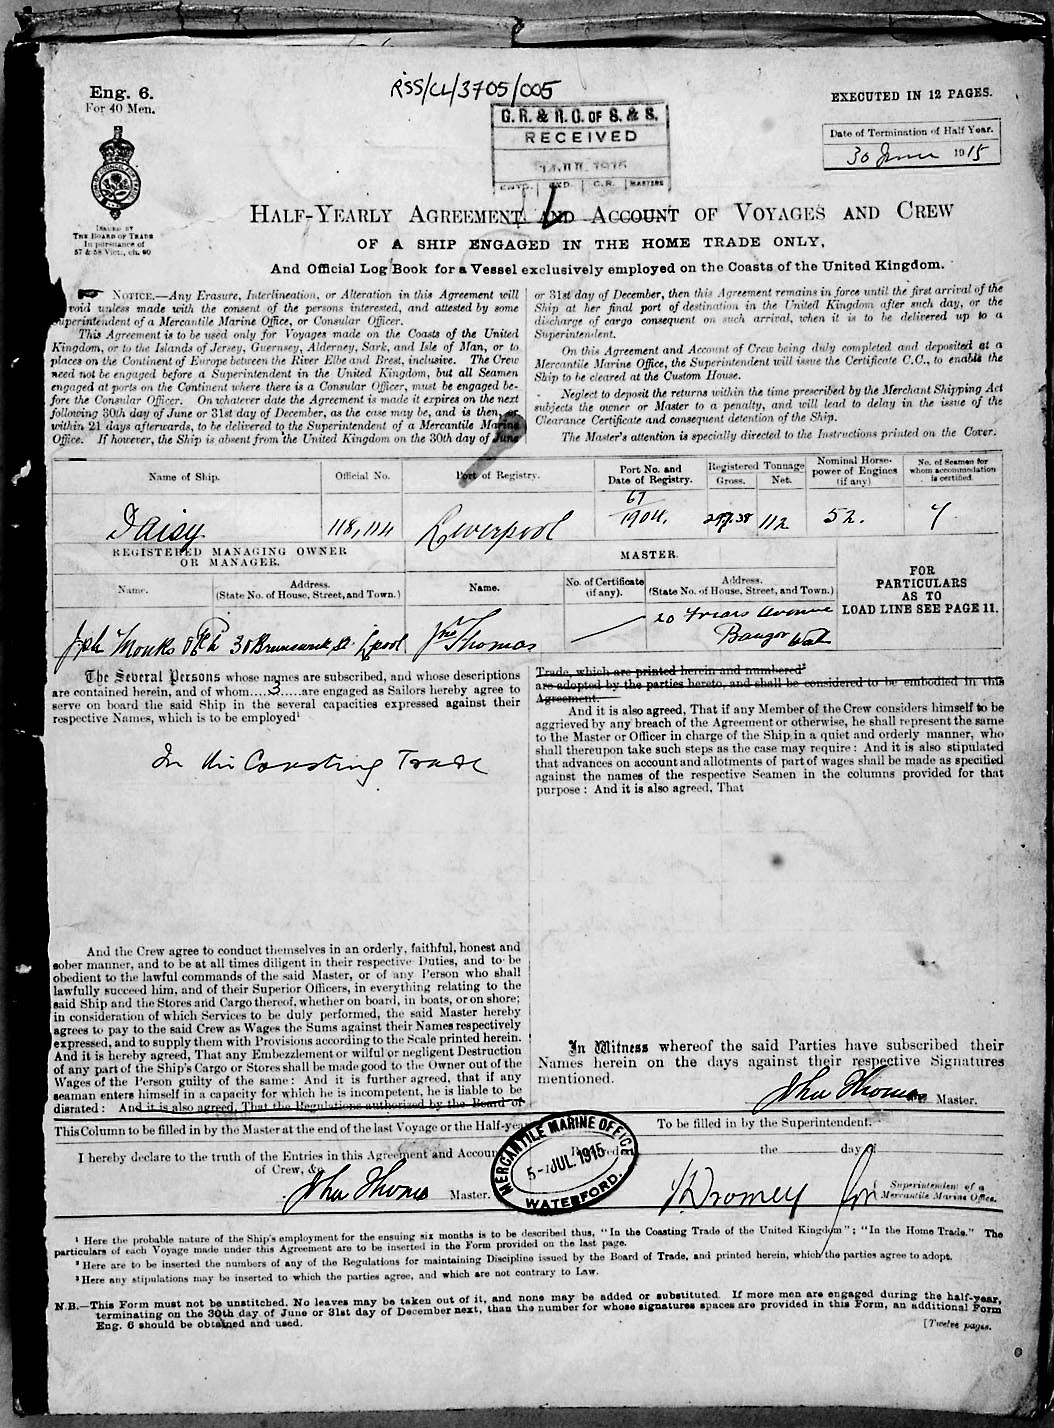 RSS/CL/3705/005
Eng. 6.
For 40 Men.
EXECUTED IN 12 PAGES.
G. R. & R. O. OF S. & S.
RECEIVED
JUL 1915
C.R.
MASTERS
Date of Termination of Half Year.
30 June 1915
ISSUED BY
THE BOARD OF TRADE
In pursuance of
57 & 58 Vict., ch. 60
HALF-YEARLY AGREEMENT AND ACCOUNT OF VOYAGES AND CREW
OF A SHIP ENGAGED IN THE HOME TRADE ONLY,
And Official Log Book for a Vessel exclusively employed on the Coasts of the United Kingdom.
NOTICE.—Any Erasure, Interlineation, or Alteration in this Agreement will
void unless made with the consent of the persons interested, and attested by some
Superintendent of a Mercantile Marine Office, or Consular Officer.
This Agreement is to be used only for Voyages made on the Coasts of the United
Kingdom, or to the Islands of Jersey, Guernsey, Alderney, Sark, and Isle of Man, or to
places on the Continent of Europe between the River Elbe and Brest, inclusive. The Crew
need not be engaged before a Superintendent in the United Kingdom, but all Seamen
engaged at ports on the Continent where there is a Consular Officer, must be engaged be-
fore the Consular Officer. On whatever date the Agreement is made it expires on the next
following 30th day of June or 31st day of December, as the case may be, and is then, or
within 21 days afterwards, to be delivered to the Superintendent of a Mercantile Marine
Office. If however, the Ship is absent from the United Kingdom on the 30th day of June
or 31st day of December, then this Agreement remains in force until the first arrival of the
Ship at her final port of destination in the United Kingdom after such day, or the
discharge of cargo consequent on such arrival, when it is to be delivered up to a
Superintendent.
On this Agreement and Account of Crew being duly completed and deposited at a
Mercantile Marine Office, the Superintendent will issue the Certificate C.C., to enable the
Ship to be cleared at the Custom House.
Neglect to deposit the returns within the time prescribed by the Merchant Shipping Act
subjects the owner or Master to a penalty, and will lead to delay in the issue of the
Clearance Certificate and consequent detention of the Ship.
The Master's attention is specially directed to the Instructions printed on the Cover.
Name of Ship.
Official No.
Port of Registry.
Port No. and
Date of Registry.
Registered Tonnage
Gross.
Net.
Nominal Horse-
power of Engines
(if any)
No. of Seamen for
whom accommodation
is certified.
Daisy
118,114
Liverpool
67
1904.
112
52.
7
REGISTERED MANAGING OWNER
OR MANAGER.
MASTER.
Name.
Address.
(State No. of House, Street, and Town.)
Name.
No. of Certificate
(if any).
Address.
(State No. of House, Street, and Town.)
FOR
PARTICULARS
AS TO
LOAD LINE SEE PAGE 11.
Monks
30 Brunswick St. Lpool
Jno Thomas
20 Friars Avenue
Bangor
The Several Persons whose names are subscribed, and whose descriptions
are contained herein, and of whom....3.....are engaged as Sailors hereby agree to
serve on board the said Ship in the several capacities expressed against their
respective Names, which is to be employed¹
In the Coasting Trade
And the Crew agree to conduct themselves in an orderly, faithful, honest and
sober manner, and to be at all times diligent in their respective Duties, and to be
obedient to the lawful commands of the said Master, or of any Person who shall
lawfully succeed him, and of their Superior Officers, in everything relating to the
said Ship and the Stores and Cargo thereof, whether on board, in boats, or on shore;
in consideration of which Services to be duly performed, the said Master hereby
agrees to pay to the said Crew as Wages the Sums against their Names respectively
expressed, and to supply them with Provisions according to the Scale printed herein.
And it is hereby agreed, That any Embezzlement or wilful or negligent Destruction
of any part of the Ship's Cargo or Stores shall be made good to the Owner out of the
Wages of the Person guilty of the same: And it is further agreed, that if any
seaman enters himself in a capacity for which he is incompetent, he is liable to be
disrated: And it is also agreed, That the Regulations authorized by the Board of
Trade, which are printed herein and numbered²
are adopted by the parties hereto, and shall be considered to be embodied in this
Agreement.
And it is also agreed, That if any Member of the Crew considers himself to be
aggrieved by any breach of the Agreement or otherwise, he shall represent the same
to the Master or Officer in charge of the Ship in a quiet and orderly manner, who
shall thereupon take such steps as the case may require: And it is also stipulated
that advances on account and allotments of part of wages shall be made as specified
against the names of the respective Seamen in the columns provided for that
purpose: And it is also agreed, That
In Witness whereof the said Parties have subscribed their
Names herein on the days against their respective Signatures
mentioned.
John Thomas Master.
This Column to be filled in by the Master at the end of the last Voyage or the Half-year
I hereby declare to the truth of the Entries in this Agreement and Account
of Crew, &c.
John Thomas Master.
MERCANTILE MARINE OFFICE
5-JUL.1915
WATERFORD.
To be filled in by the Superintendent.
the day of
Dromey for
Superintendent of a
Mercantile Marine Office.
¹ Here the probable nature of the Ship's employment for the ensuing six months is to be described thus, "In the Coasting Trade of the United Kingdom"; "In the Home Trade." The
particulars of each Voyage made under this Agreement are to be inserted in the Form provided on the last page.
² Here are to be inserted the numbers of any of the Regulations for maintaining Discipline issued by the Board of Trade, and printed herein, which the parties agree to adopt.
³ Here any stipulations may be inserted to which the parties agree, and which are not contrary to Law.
N.B.—This Form must not be unstitched. No leaves may be taken out of it, and none may be added or substituted. If more men are engaged during the half-year,
terminating on the 30th day of June or 31st day of December next, than the number for whose signatures spaces are provided in this Form, an additional Form
Eng. 6 should be obtained and used.
[Twelve pages.